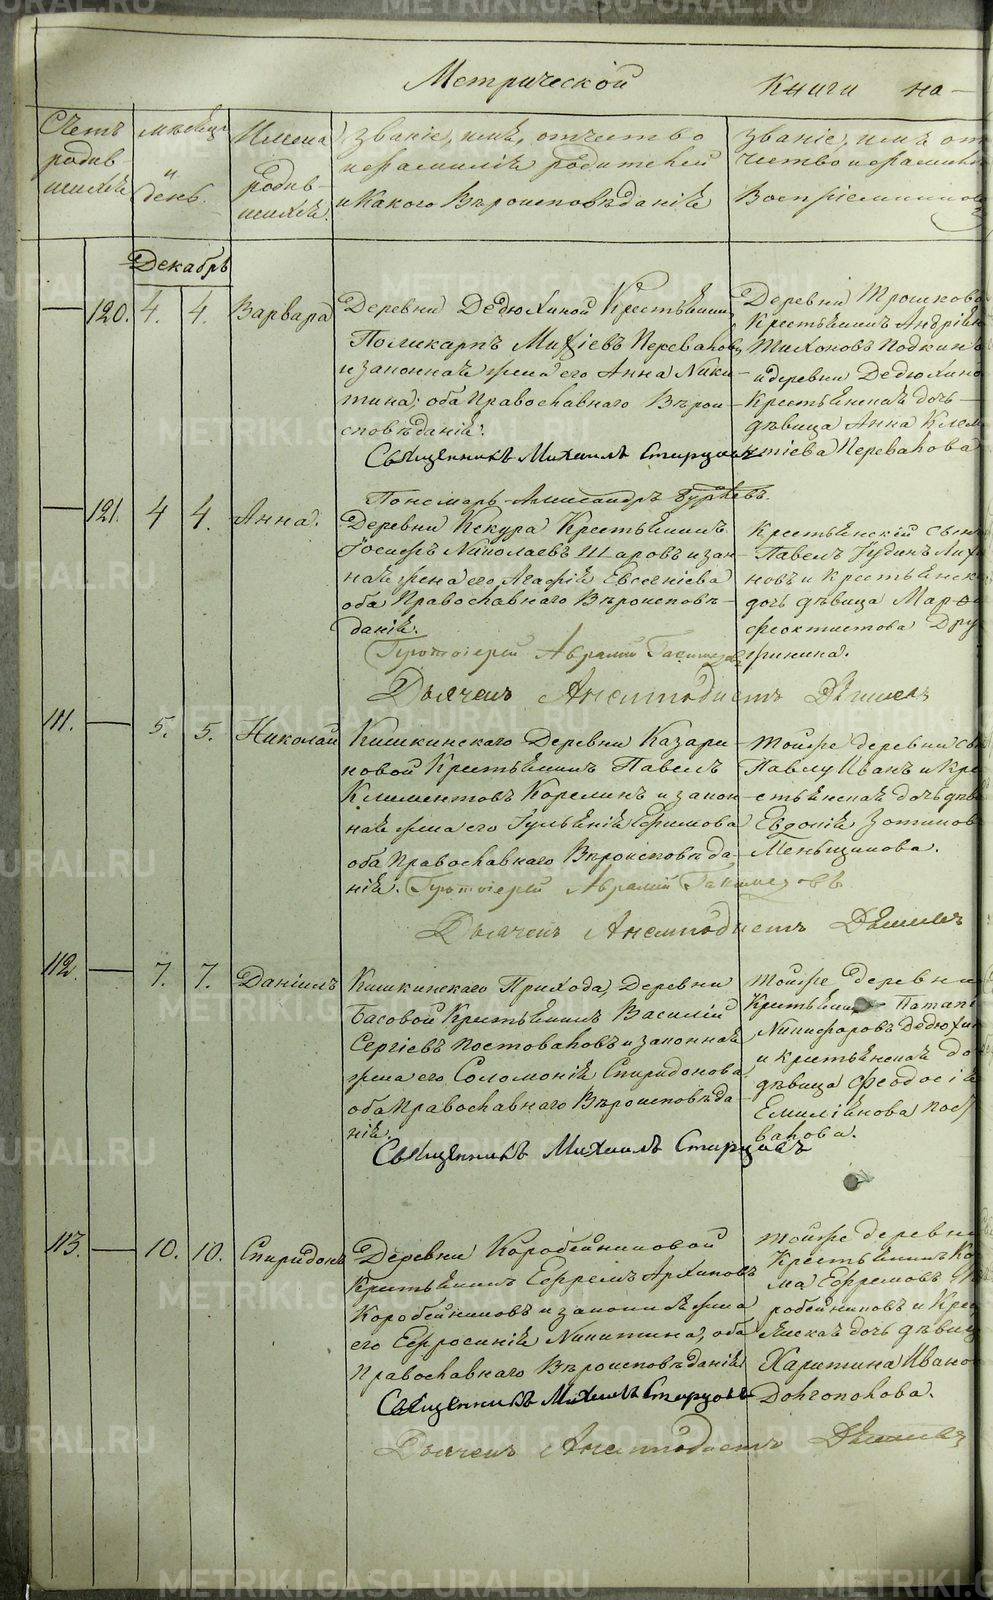 Метрической Книги на
Счетъ родив- шихся
мѣсяцъ и день.
Имена родив- шихся.
Званіе, имя, отчество и фамилія родителей и какого Вѣроисповѣданія
Званіе, имя от чество и фамилія Воспріемниковъ
Декабрь
120. 4. 4. Варвара
Деревни Дедюхиной Крестьянинъ
Поликарпъ Перевалов
и законная жена его Анна Ники-
тина, оба Православнаго Вѣрои-
сповѣданія.
Священникъ Михаилъ Старцевъ
Пономарь Александръ
Деревни Трошково
Крестьянинъ Андрей
Тихоновъ
и деревни Дедюхино
Крестьянская дочь
дѣвица Анна Клем
нтіева Перевалова
121. 4 4. Анна.
Деревни Кекура Крестьянинъ
Іосифъ Николаевъ Шаровъ и закон
ная жена его Агафія Евгеніева
оба Православнаго Вѣроисповѣ-
данія.
Протоіерей Аврамій
Дьячекъ Анемподистъ
Крестьянскій сын
Павелъ Іудинъ
новъ и крестьянск
дочь дѣвица Марѳа
Феоктистова Дру
жинина.
111. 5. 5. Николай
Кишкинскаго Деревни Казари
новой Крестьянинъ Павелъ
Климентовъ Корелинъ и закон-
ная жена его Іульянія Ефимова
оба Православнаго Вѣроисповѣда-
нія. Протоіерей Аврамій
Дьячекъ Анемподистъ
Той же деревни
Павлу Иванъ и кре
стьянская дочь дѣв
Евдокія Зотиков
Меньщикова.
112. 7. 7. Даніилъ
Кишкинскаго Прихода, Деревни
Басовой Крестьянинъ Василій
Сергіевъ Постоваловъ и законная
жена его Соломонія Спиридонова
оба Православнаго Вѣроисповѣда-
нія.
Священникъ Михаилъ Старцевъ
Той же деревни
Крестьянинъ
Никифоровъ Дедюхин
и крестьянская до
дѣвица Феодосія
Емиліянова Пост
валова.
113. 10. 10. Спиридонъ
Деревни Коробейниковой
Крестьянинъ Ефремъ Архиповъ
Коробейниковъ и законная жена
его Ефросинія Никитина, оба
Православнаго Вѣроисповѣданія
Священникъ Михаилъ Старцовъ
Дьячекъ Анемподистъ
Той же деревни
Крестьянинъ Ко
ма Ефремовъ Ко
робейниковъ и Крес
янская дочь дѣвиц
Харитина Ивано
Долгополова.
METRIKI.GASO-URAL.RU